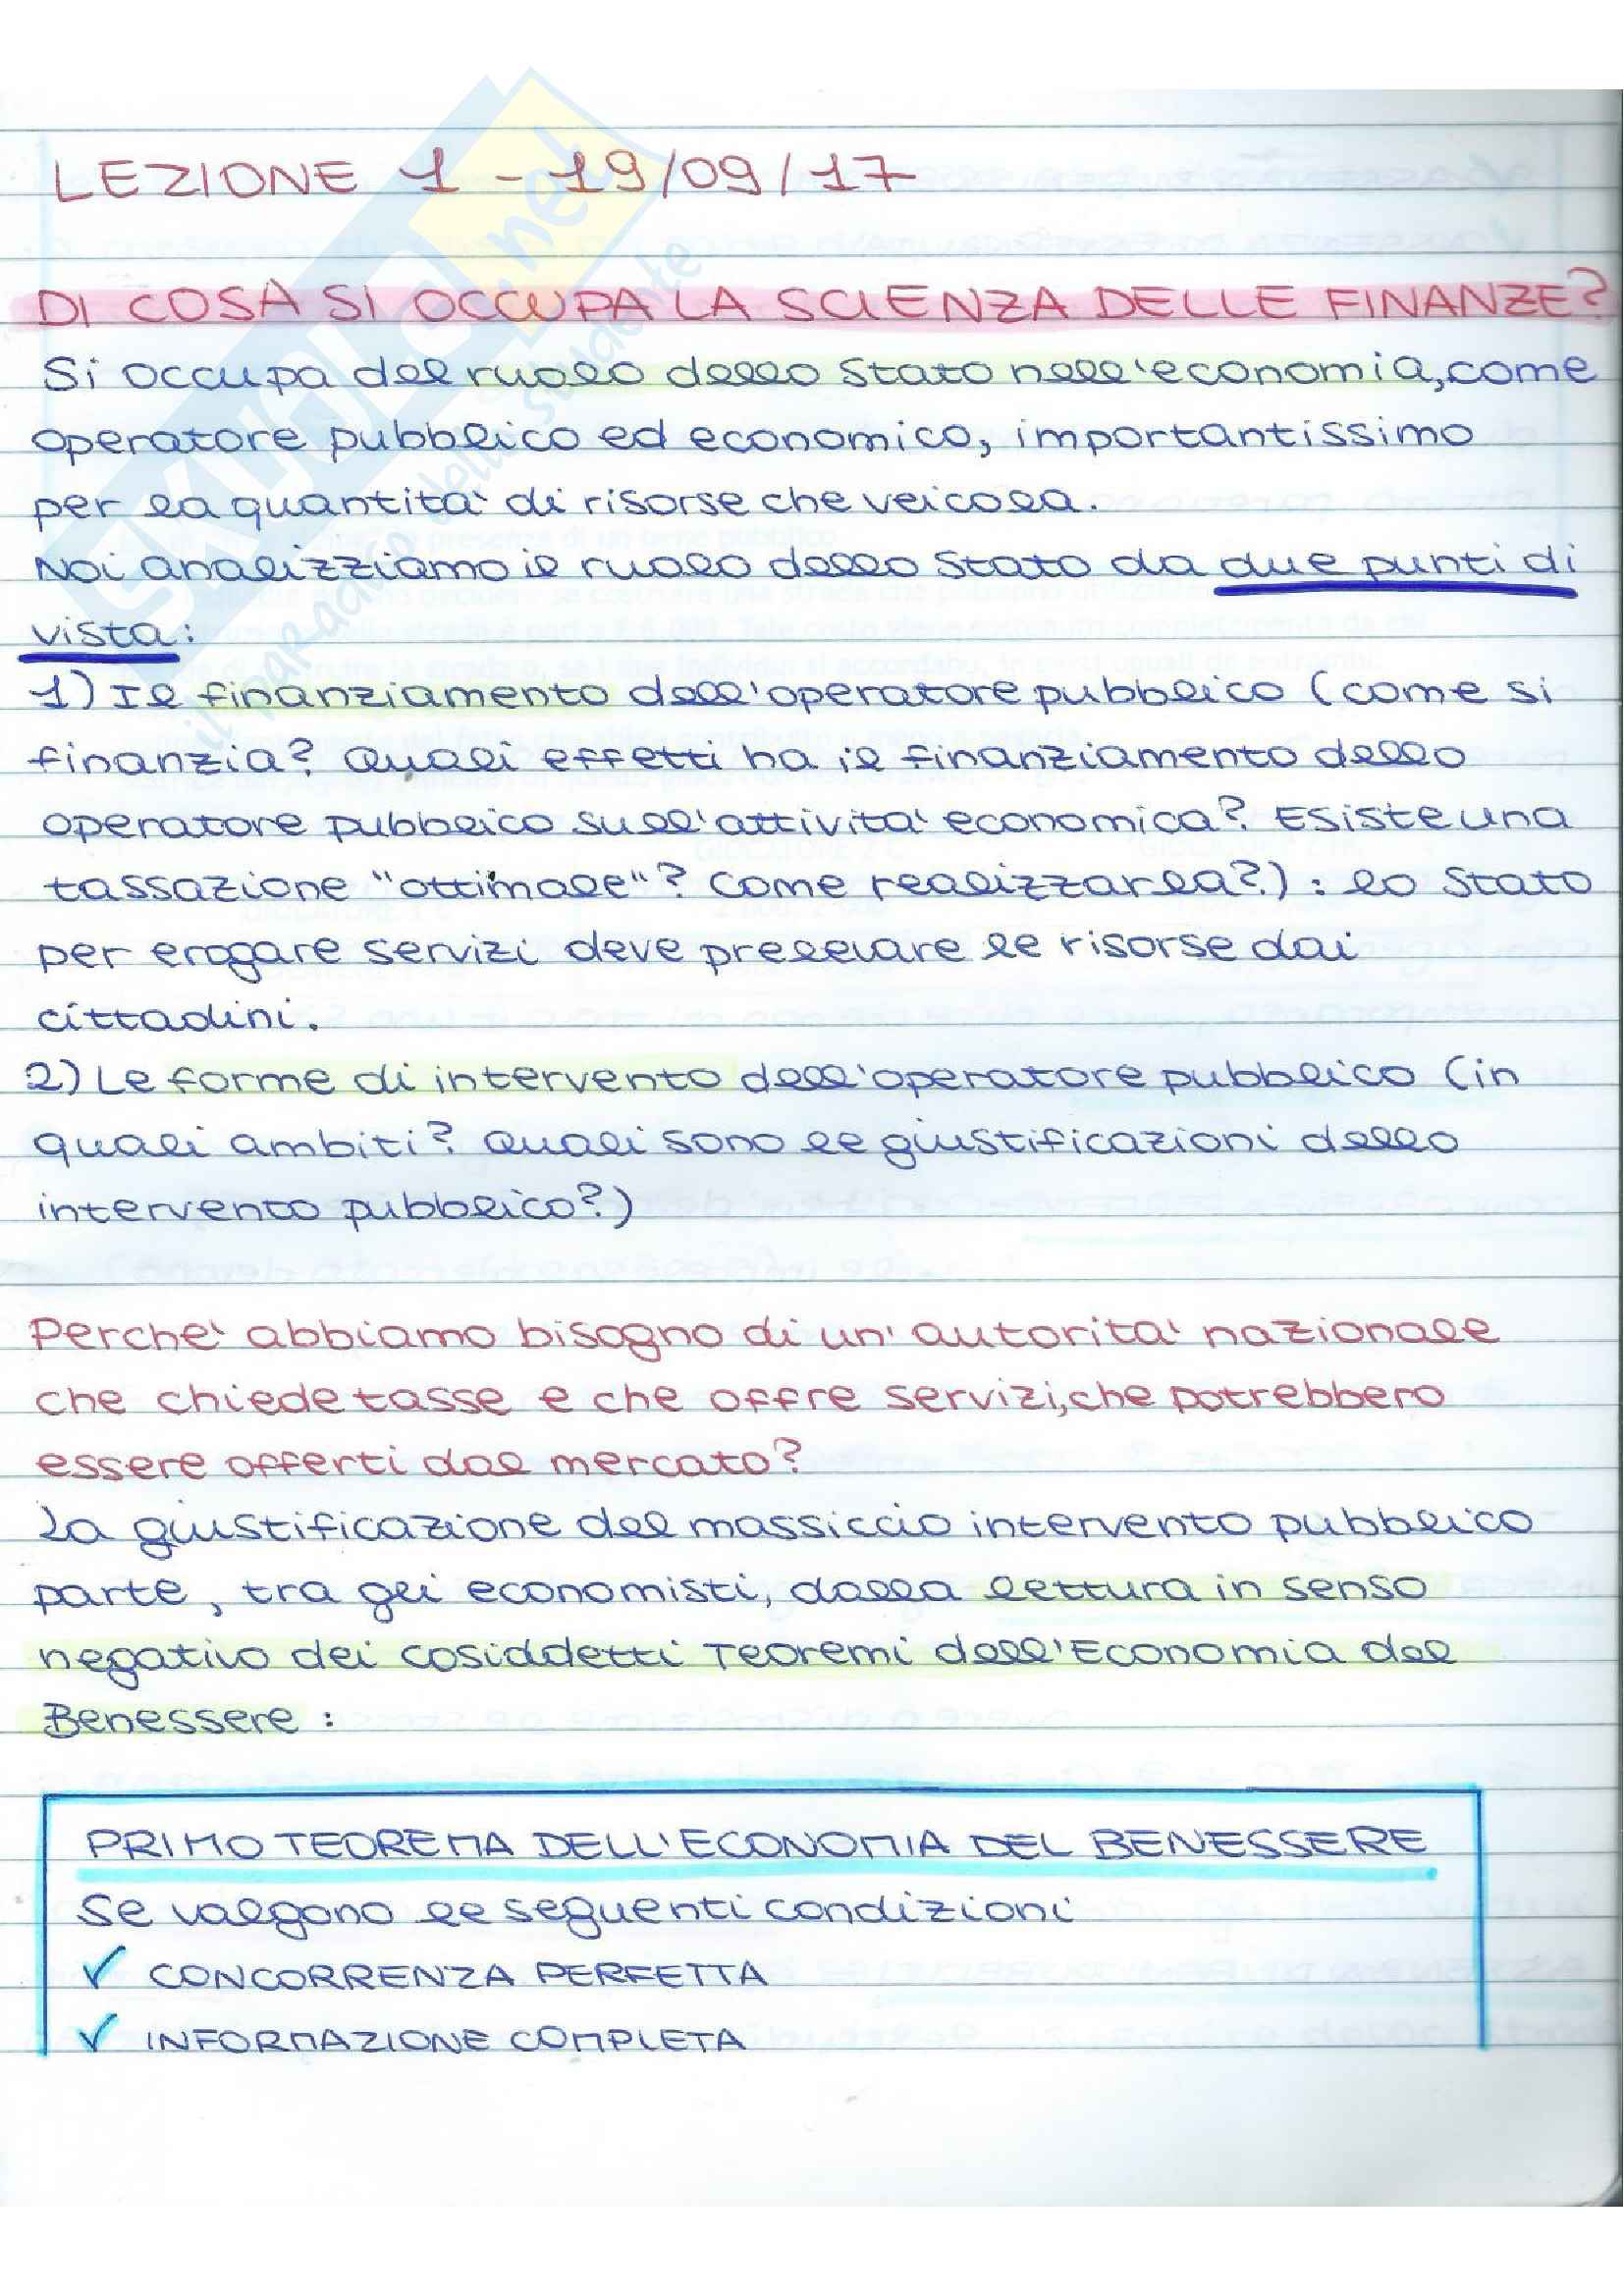 LEZIONE 1 - 19/09/17
DI COSA SI OCCUPA LA SCIENZA DELLE FINANZE?
Si occupa del ruolo dello Stato nell'economia, come
operatore pubblico ed economico, importantissimo
per la quantita' di risorse che veicola.
Noi analizziamo il ruolo dello Stato da due punti di
vista:
1) Il finanziamento dell'operatore pubblico (come si
finanzia? Quali effetti ha il finanziamento dello
operatore pubblico sull'attivita' economica? Esiste una
tassazione "ottimale"? Come realizzarla?): lo Stato
per erogare servizi deve prelevare le risorse dai
cittadini.
2) Le forme di intervento dell'operatore pubblico (in
quali ambiti? Quali sono le giustificazioni dello
intervento pubblico?)
Perche' abbiamo bisogno di un' autorita' nazionale
che chiede tasse e che offre servizi, che potrebbero
essere offerti dal mercato?
La giustificazione del massiccio intervento pubblico
parte, tra gli economisti, dalla lettura in senso
negativo dei cosiddetti Teoremi dell'Economia del
Benessere:
PRIMO TEOREMA DELL'ECONOMIA DEL BENESSERE
Se valgono le seguenti condizioni
✓ CONCORRENZA PERFETTA
✓ INFORMAZIONE COMPLETA
SKUOLA.net
il paradiso dello studente